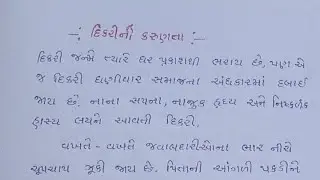 -: દિકરીની કરુણતા :-
દિકરી જન્મે ત્યારે ઘર પ્રકાશથી ભરાય છે. પણ એ
જ દિકરી ઘણીવાર સમાજના અંધકારમાં દબાઈ
જાય છે. નાના સપના, નાજુક હૃદય અને નિષ્કલંક
હાસ્ય લઈને આવતી દિકરી.
વખતે - વખતે જવાબદારીઓના ભાર નીચે
ચૂપચાપ ઝૂકી જાય છે. પિતાની આંગળી પકડીને